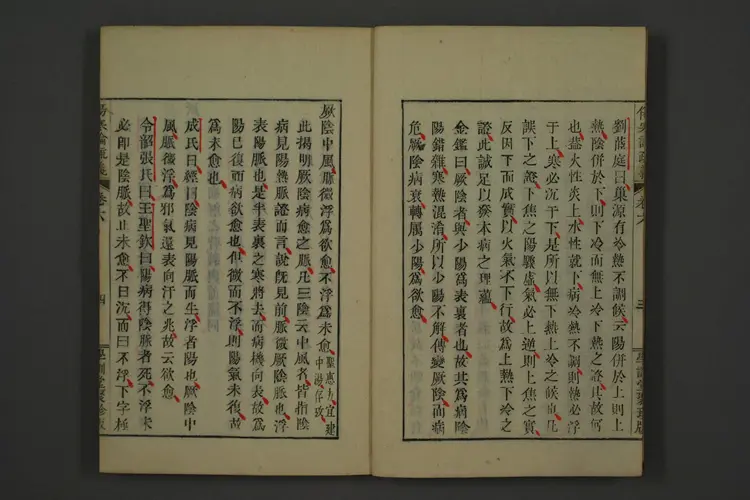 劉茝庭曰巢源有冷熱不調候云陽併於上則上
熱陰併於下則下冷而無上冷下熱之證其故何
也蓋火性炎上水性就下病冷熱不調則熱必浮
于上寒必沉于下是所以無下熱上冷之候也凡
誤下之證下焦之陽驟虛氣必上逆則上焦之實
反因下而成實以火氣不下行故為上熱下冷之
證此誠足以發本病之理蘊
金鑑曰厥陰者與少陽為表裏者也故其為病陰
陽錯雜寒熱混淆所以少陽不解傳變厥陰而病
危厥陰病衰轉屬少陽為欲愈
三
厥陰中風脈微浮為欲愈不浮為未愈
此揭明厥陰病愈之脈凡三陰云中風者皆指陰
病見陽熱脈證而言說既見前脈微厥陰脈也浮
表陽脈也是半表裏之寒將去而病機向表故為
陽已復而病欲愈也但微而不浮則陽氣未復故
為未愈也
成氏曰經曰陰病見陽脈而生浮者陽也厥陰中
風脈微浮為邪氣還表向汗之兆故云欲愈
令韶張氏曰王聖欽曰陽病得陰脈者死不浮未
必即是陰脈故止未愈不曰沉而曰不浮下字極
傷寒論疏義
卷六
四